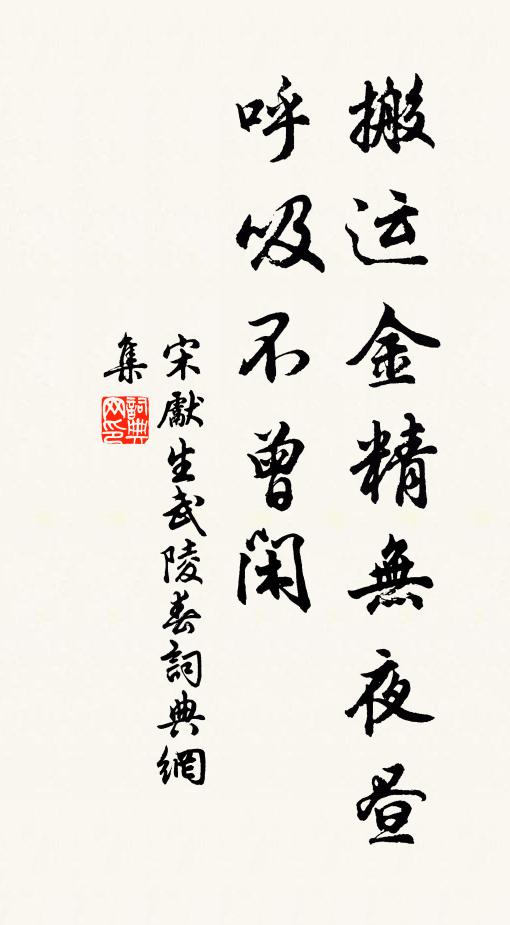 搬运金精無夜昼
呼吸不曾闲
宋獻生武陵春詞典網
集
詞典网印